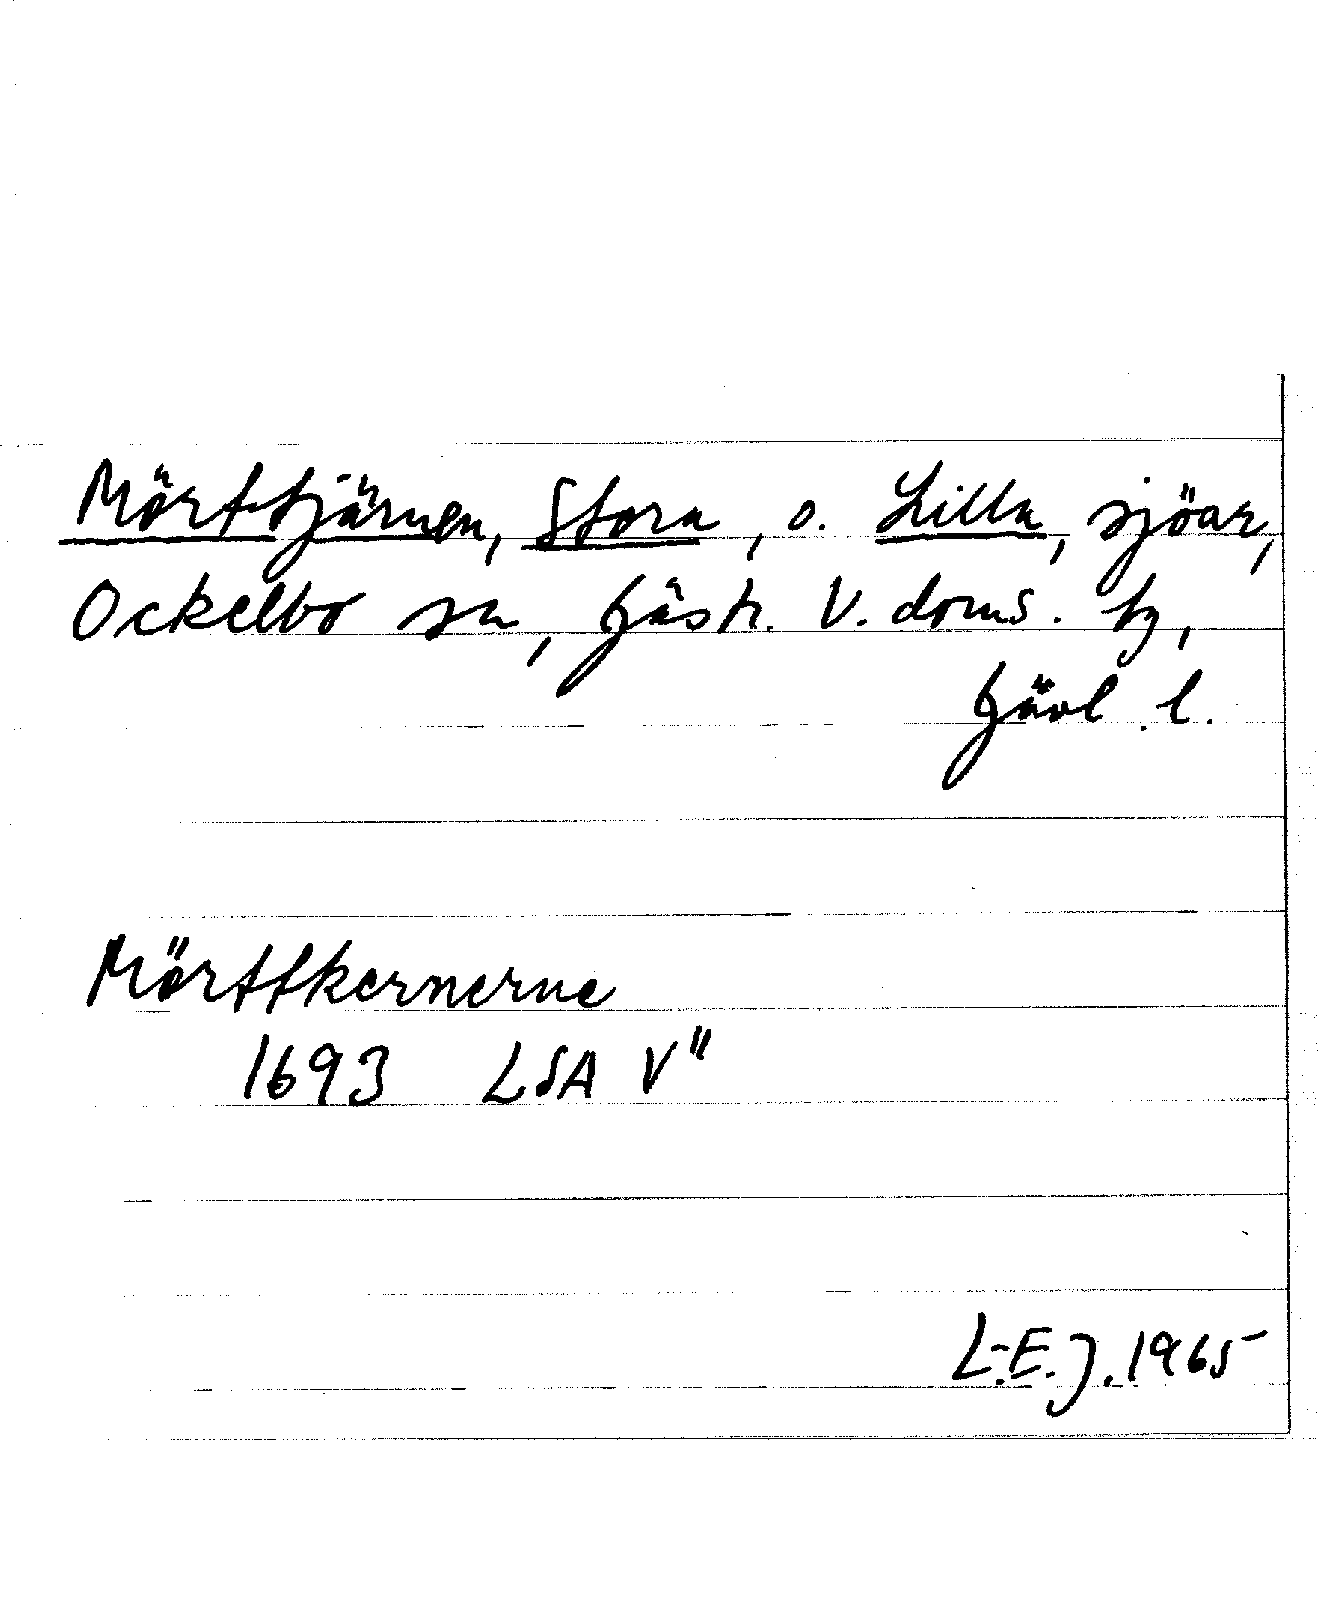 Mörttjärnen, Stora, o. Lilla, sjöar,
Ockelbo sn, Gästr. V. doms. tg,
Gävl. l.
Mörttkernerne
1693 LSA V"
L-E. J. 1965